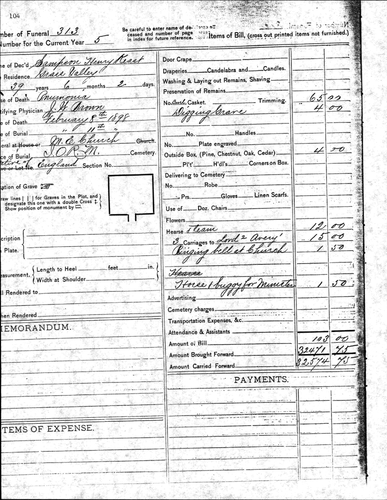 104
Number of Funeral 313
Number for the Current Year 5
Be careful to enter name of deceased and number of page in index for future reference.
Items of Bill, (cross out printed items not furnished.)
Name of Dec'd Sampson Henry Keast
Residence Grass Valley
39 years 6 months 2 days
Cause of Death Pneumonia
Certifying Physician Brown
Date of Death February 8th 1898
Date of Burial " 11th "
Funeral at M E Church Church.
Place of Burial I.O.O.F. Cemetery.
England Section No.
Location of Grave
Draw lines for Graves in the Plot, and designate this one with a double Cross
Show position of monument by
Description
Plate
Measurement, Length to Heel feet in.
Width at Shoulder
Bill Rendered
When Rendered
MEMORANDUM.
ITEMS OF EXPENSE.
Door Crape
Draperies Candelabra and Candles.
Washing & Laying out Remains, Shaving
Preservation of Remains.
Casket Trimming. 65 00
Digging Grave 4 00
No. Handles
Plate engraved
Outside Box, (Pine, Chestnut, Oak, Cedar) 4 00
Pl'y H'd'l's Corners on Box.
Delivering to Cemetery
No. Robe
Prs. Gloves Linen Scarfs.
Use of Doz. Chairs
Flowers
Hearse & team 12 00
3 Carriages to Lord & Avery 15 00
Ringing bell at Church 1 50
Hearse
Horse & buggy for Minister 1 50
Advertising
Cemetery charges
Transportation Expenses, &c.
Attendance & Assistants
Amount of Bill 103 00
Amount Brought Forward 32471 75
Amount Carried Forward 32,574 75
PAYMENTS.